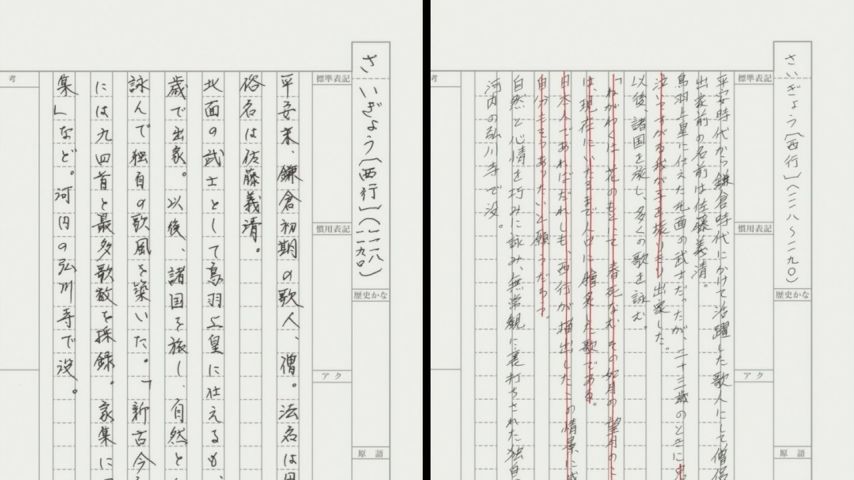 さいぎょう〔西行〕(一一一八〜一一九〇)
標準表記
慣用表記
歴史かな
アク
原語
平安時代から鎌倉時代にかけて活躍した歌人にして僧侶
出家前の名前は佐藤義清。
鳥羽上皇に仕えた北面の武士だったが、二十三歳のときに
泣いてすがる我が子を振り切り出家した。
以後、諸国を旅し、多くの歌を詠む。
「ねがわくは 花のもとにて 春死なむ その如月の 望月の
は、現在にいたるまで人口に膾炙した歌である。
日本人であればだれしも、西行が描出したこの情景に
自分もそうありたいと願ったろう。
自然と心情を巧みに詠み、無常観に裏打ちされた独自
河内の弘川寺で没。
さいぎょう〔西行〕(一一一八
一一九〇)
標準表記
慣用表記
歴史かな
アク
原語
考
平安末、鎌倉初期の歌人、僧。法名は円
俗名は佐藤義清。
北面の武士として鳥羽上皇に仕えるも、
歳で出家。以後、諸国を旅し、自然と
詠んで独自の歌風を築いた。「新古今
には九四首と最多歌数を採録。家集に
集」など。河内の弘川寺で没。